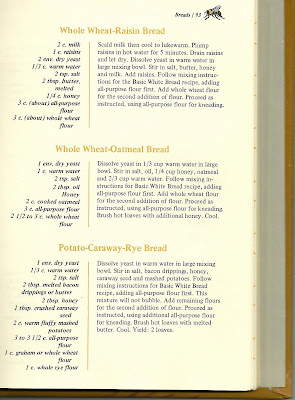 Breads / 93
Whole Wheat-Raisin Bread
2 c. milk
1 c. raisins
2 env. dry yeast
1/3 c. warm water
2 tsp. salt
2 tbsp. butter,
melted
1/4 c. honey
3 c. (about) all-purpose
flour
3 c. (about) whole wheat
flour
Scald milk then cool to lukewarm. Plump
raisins in hot water for 5 minutes. Drain raisins
and let dry. Dissolve yeast in warm water in
large mixing bowl. Stir in salt, butter, honey
and milk. Add raisins. Follow mixing instruc-
tions for the Basic White Bread recipe, adding
all-purpose flour first. Add whole wheat flour
for the second addition of flour. Proceed as
instructed, using all-purpose flour for kneading.
Whole Wheat-Oatmeal Bread
1 env. dry yeast
1 c. warm water
2 tsp. salt
2 tbsp. oil
Honey
2 c. cooked oatmeal
3 c. all-purpose flour
2 1/2 to 3 c. whole wheat
flour
Dissolve yeast in 1/3 cup warm water in large
bowl. Stir in salt, oil, 1/4 cup honey, oatmeal
and 2/3 cup warm water. Follow mixing in-
structions for Basic White Bread recipe, adding
all-purpose flour first. Add whole wheat flour
for the second addition of flour. Proceed as
instructed, using all-purpose flour for kneading.
Brush hot loaves with additional honey. Cool.
Potato-Caraway-Rye Bread
1 env. dry yeast
1/3 c. warm water
2 tsp. salt
2 tbsp. melted bacon
drippings or butter
2 tbsp. honey
1 tbsp. crushed caraway
seed
2 c. warm fluffy mashed
potatoes
3 to 3 1/2 c. all-purpose
flour
1 c. graham or whole wheat
flour
1 c. whole rye flour
Dissolve yeast in warm water in large mixing
bowl. Stir in salt, bacon drippings, honey,
caraway seed and mashed potatoes. Follow
mixing instructions for Basic White Bread
recipe, adding all-purpose flour first. This
mixture will not bubble. Add remaining flours
for the second addition of flour. Proceed as
instructed, using additional all-purpose flour
for kneading. Brush hot loaves with melted
butter. Cool. Yield: 2 loaves.